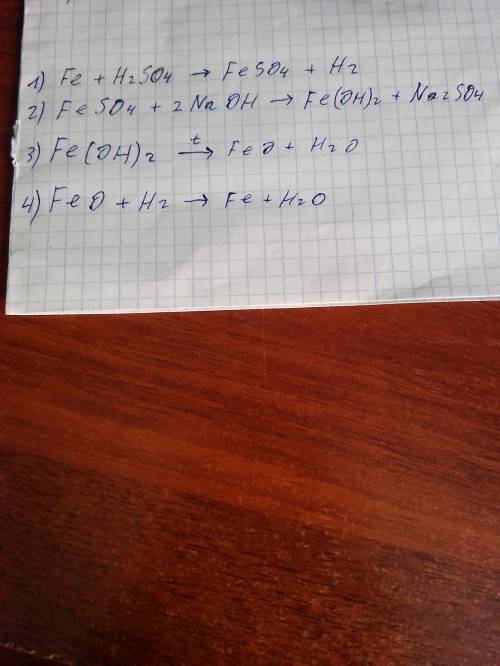 1) Fe + H2SO4 → FeSO4 + H2
2) FeSO4 + 2NaOH → Fe(OH)2 + Na2SO4
3) Fe(OH)2 t→ FeO + H2O
4) FeO + H2 → Fe + H2O